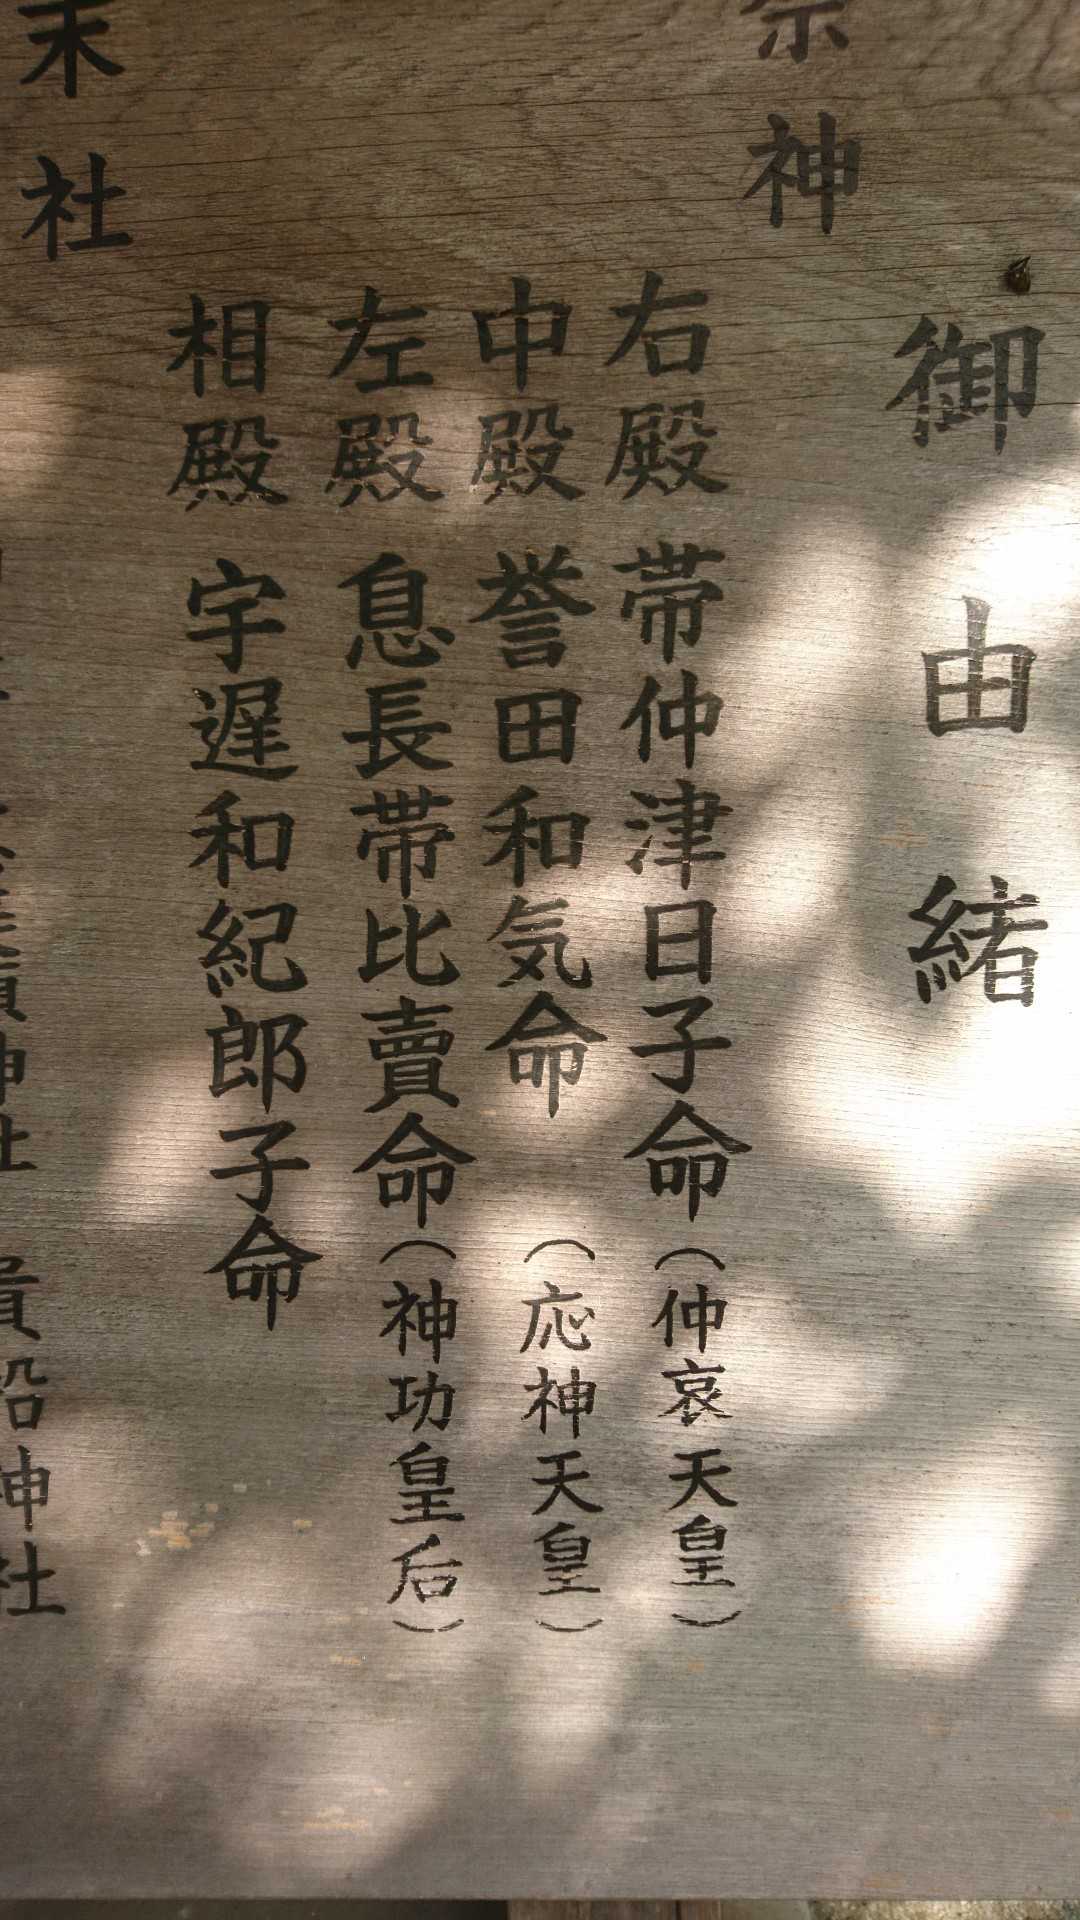 御由緒
祭神
右殿 帯仲津日子命(仲哀天皇)
中殿 誉田和気命(応神天皇)
左殿 息長帯比賣命(神功皇后)
相殿 宇遅和紀郎子命
末社
神社 貴船神社